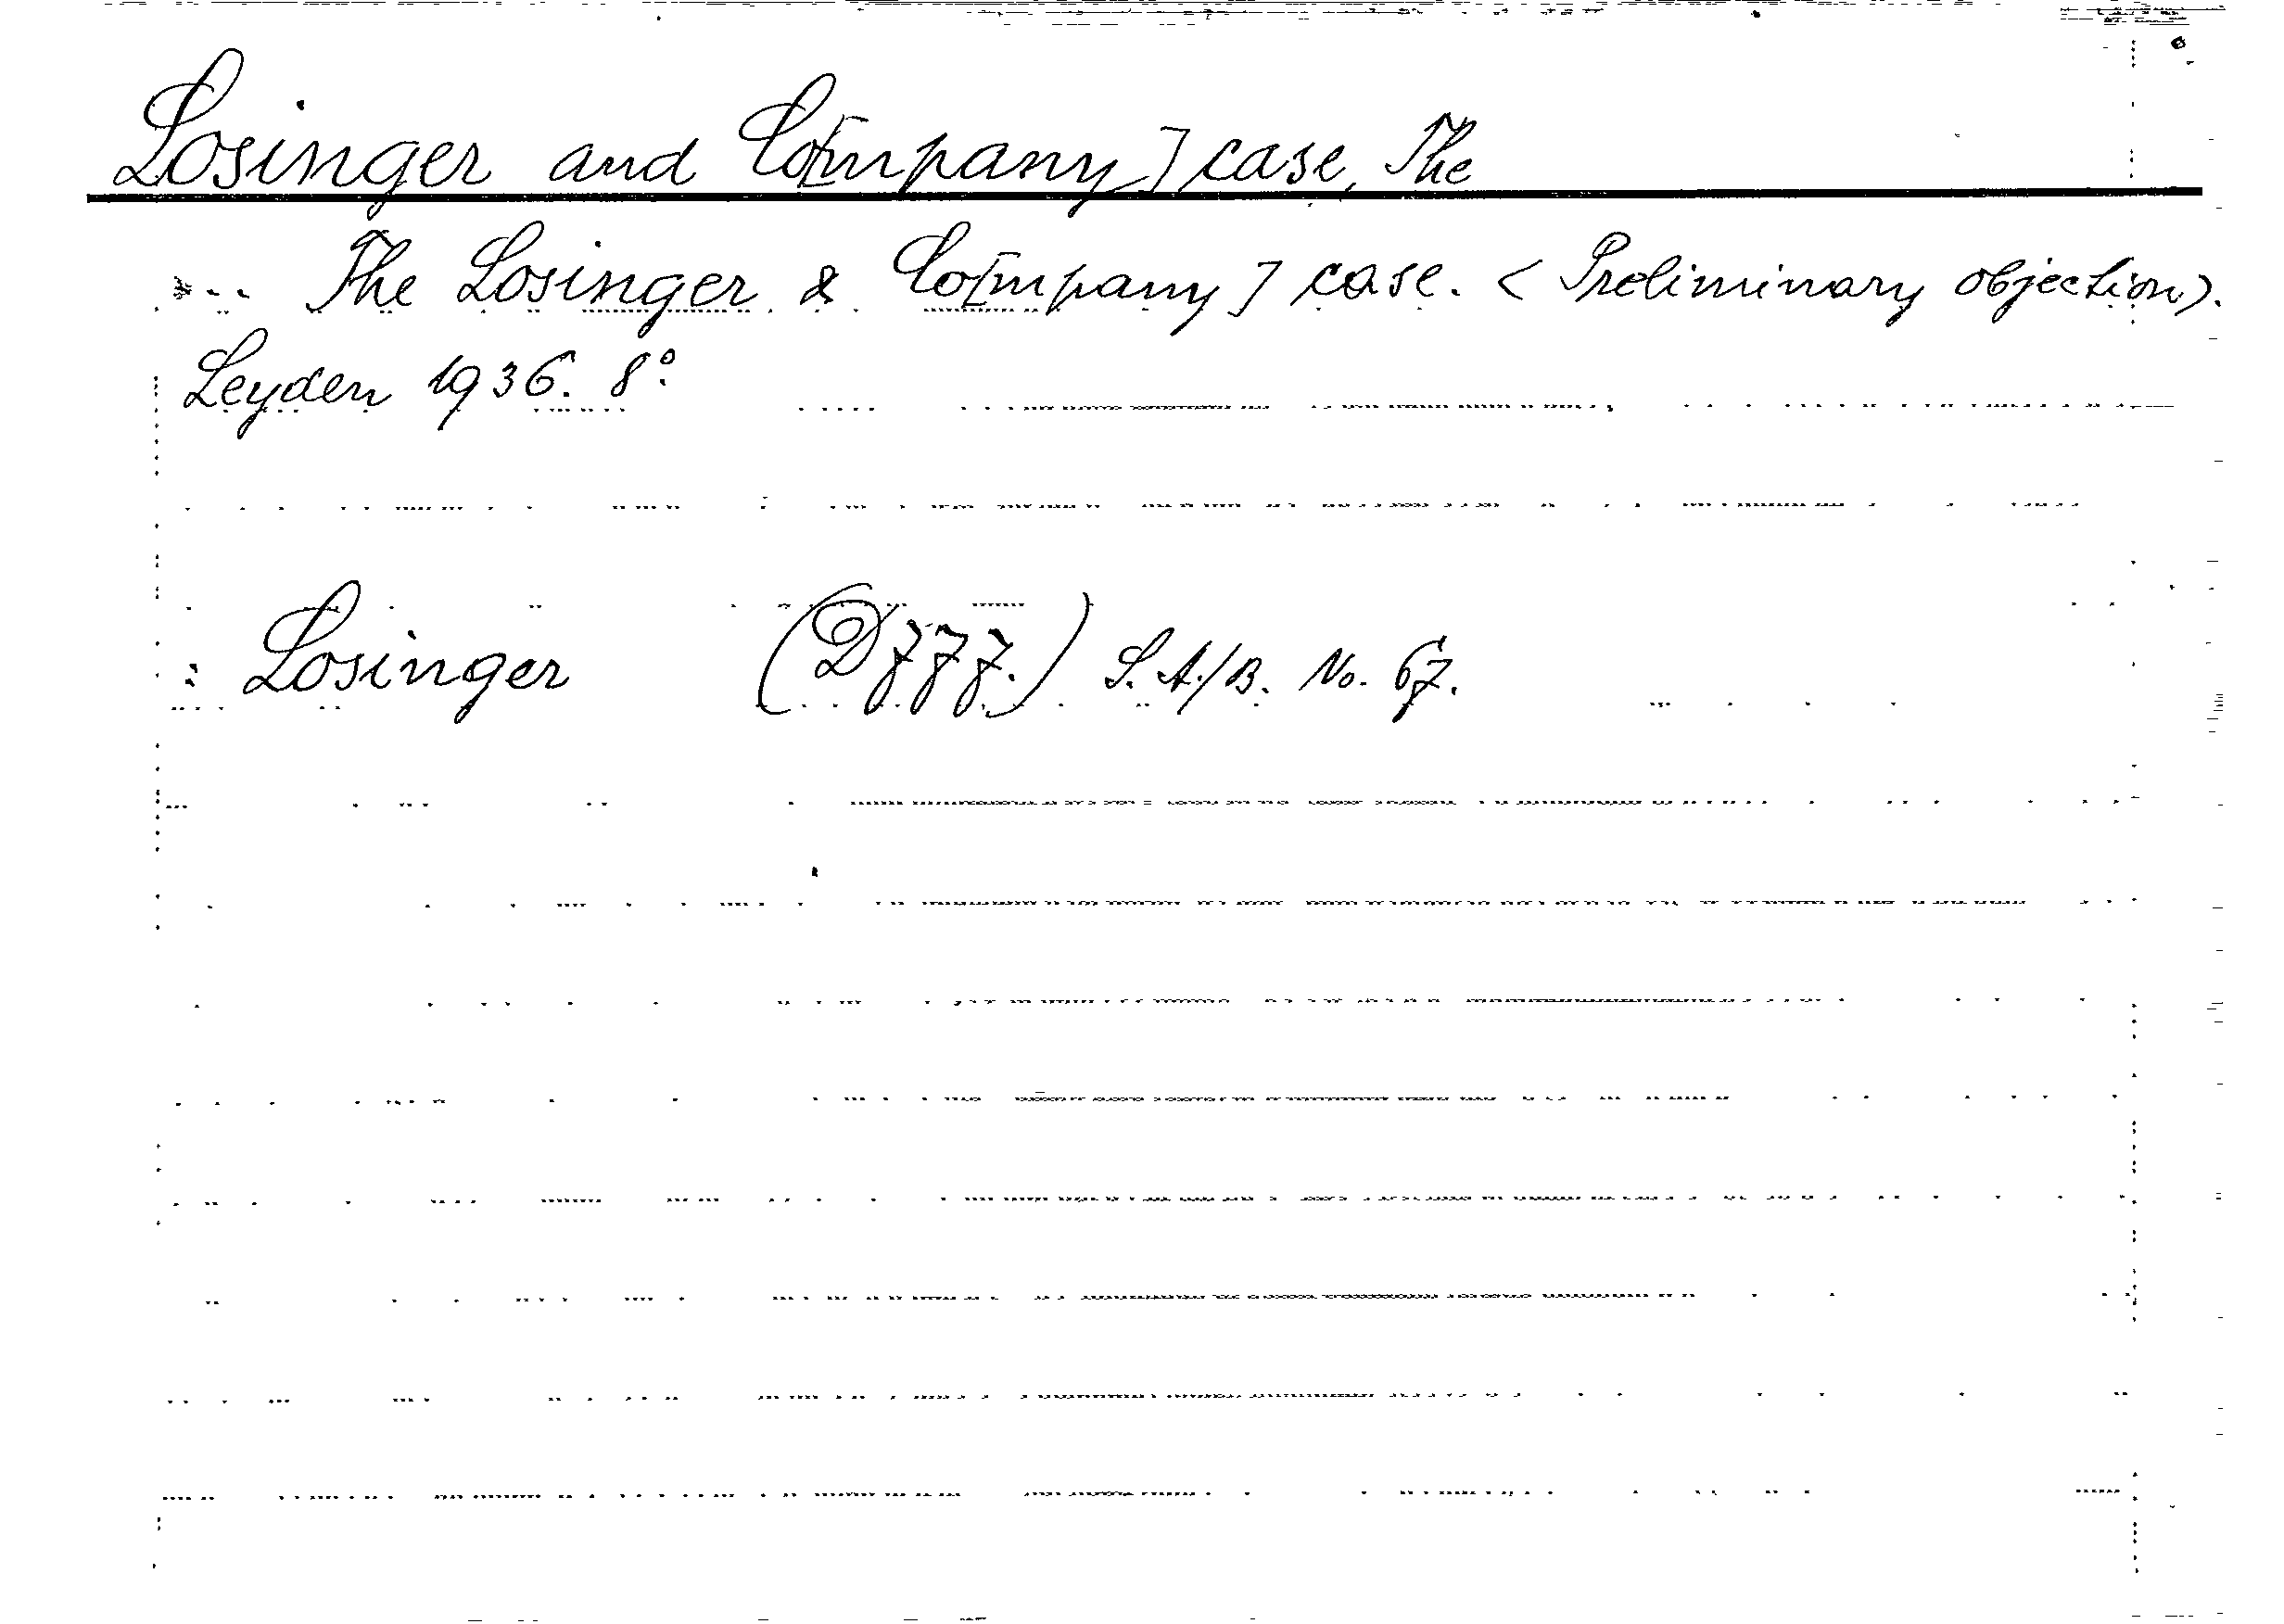 Losinger and Co[mpany] case, The
*-- The Losinger & Co[mpany] case. < Preliminary objection).
Leyden 1936. 8°.
: Losinger (D777.) S. A./B. No. 67.